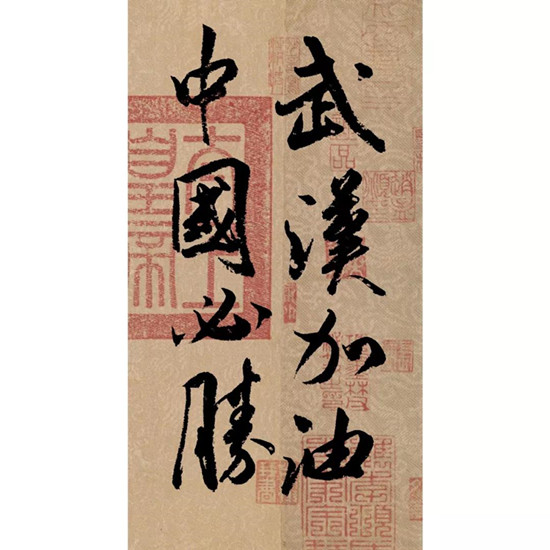 武漢加油
中國必勝